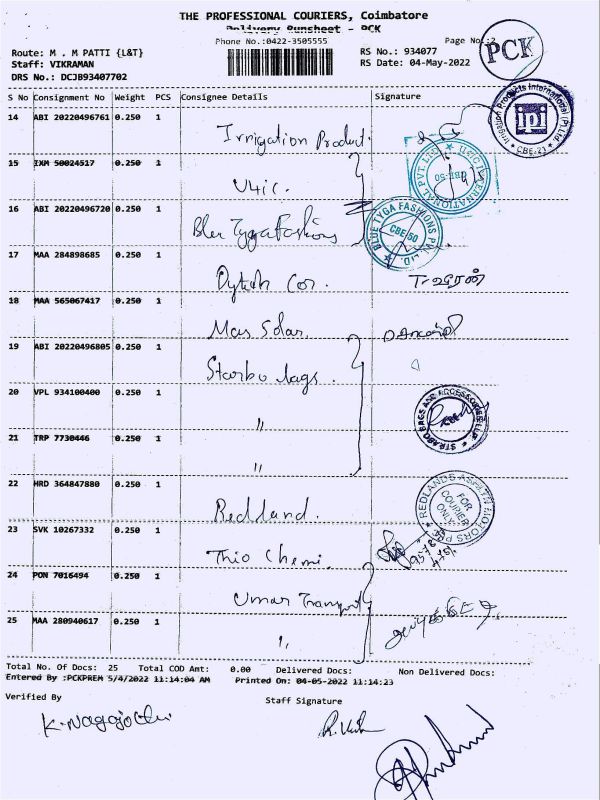 THE PROFESSIONAL COURIERS, Coimbatore
Delivery Runsheet - PCK
Phone No.:0422-3505555
Page No.:2
PCK
Route: M . M PATTI {L&T}
RS No.: 934077
Staff: VIKRAMAN
RS Date: 04-May-2022
DRS No.: DCJB93407702
S No Consignment No Weight PCS Consignee Details Signature
14 ABI 20220496761 0.250 1 Irrigation Product.
Irrigation Products International (P) Ltd
ipi
* CBE-21 *
15 IXM 50024517 0.250 1 U4ic.
INTERNATIONAL PVT. LTD
CBE-50
16 ABI 20220496720 0.250 1 Blue Tyga Fashions
BLUE TYGA FASHIONS PVT. LTD.
CBE-50
17 MAA 284898685 0.250 1
18 MAA 565067417 0.250 1 Mas Solar.
19 ABI 20220496805 0.250 1 Starbo bags.
20 VPL 934100400 0.250 1 "
STRABO BAGS AND ACCESSORIES LLP
21 TRP 7730446 0.250 1 "
22 HRD 364847880 0.250 1 Redland.
REDLANDS MOTORS
FOR
COURIER
ONLY
23 SVK 10267332 0.250 1 Thio Chemi.
24 PON 7016494 0.250 1 Umar Transport
25 MAA 280940617 0.250 1 "
Total No. Of Docs: 25 Total COD Amt: 0.00 Delivered Docs: Non Delivered Docs:
Entered By :PCKPREM 5/4/2022 11:14:04 AM Printed On: 04-05-2022 11:14:23
Verified By Staff Signature